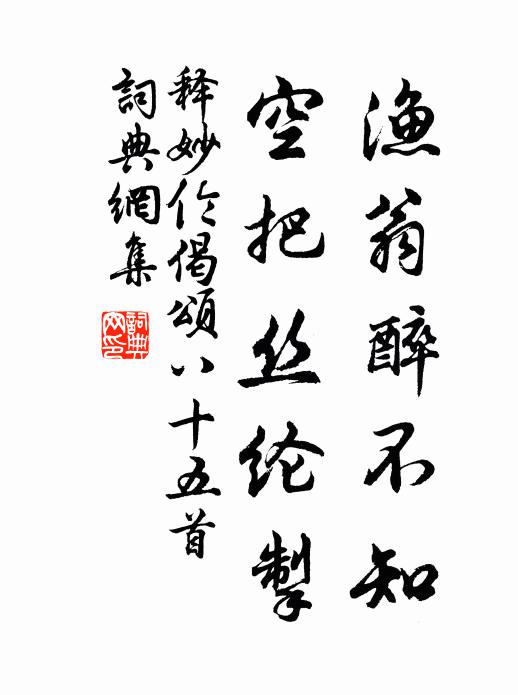 漁翁醉不知
空把丝纶掣
释妙伦偈頌八十五首
詞典網集
詞典网印